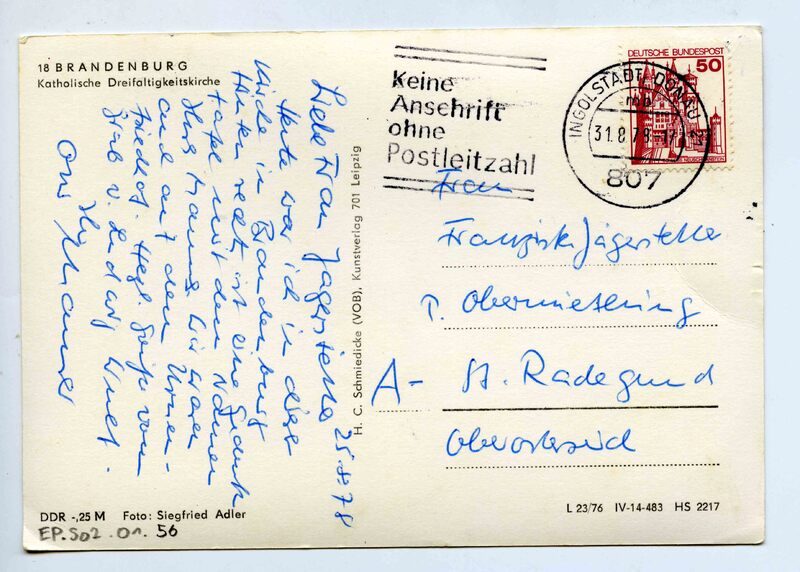 18 BRANDENBURG
Katholische Dreifaltigkeitskirche
Liebe Frau Jägerstätter 25.8.78
Heute war ich in dieser
Kirche in Brandenburg
Hinten rechts ist eine Gedenk
tafel mit dem Namen
Ihres Mannes. Wir waren
auch auf dem Urnen-
friedhof. Herzl. Grüße vom
Grab v.
Ihr
H. C. Schmiedicke (VOB), Kunstverlag 701 Leipzig
Keine
Anschrift
ohne
Postleitzahl
DEUTSCHE BUNDESPOST
50
INGOLSTADT, DONAU
mb
31.8.78-17
807
Frau
Franziska Jägerstätter
P. Obermieseting
A- St. Radegund
Oberösterreich
DDR -,25 M Foto: Siegfried Adler
EP.S02.01.56
L 23/76 IV-14-483 HS 2217